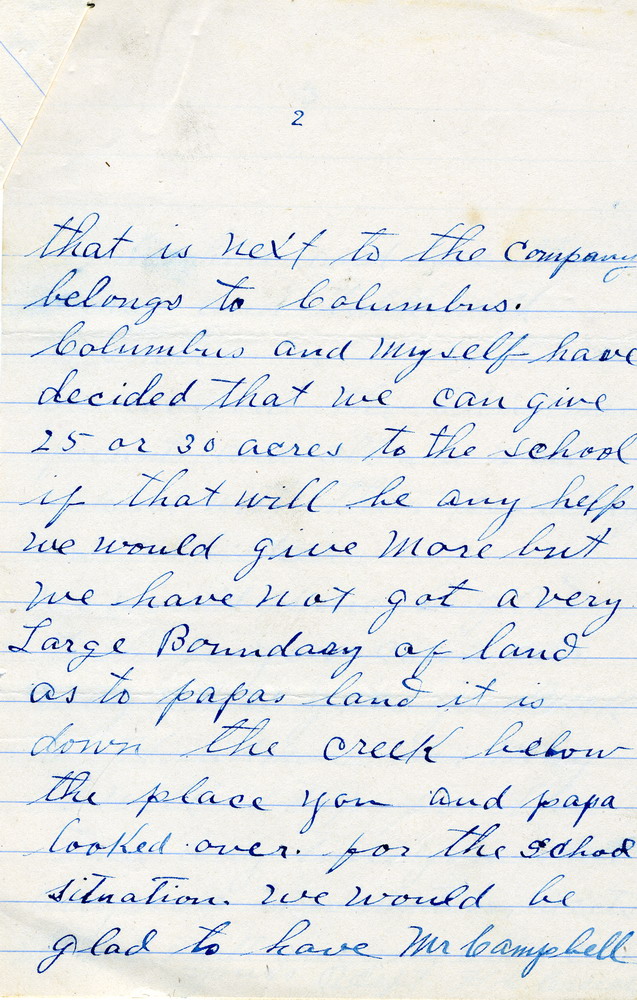 2
that is next to the company
belongs to Columbus.
Columbus and Myself have
decided that we can give
25 or 30 acres to the school
if that will be any help
we would give More but
we have not got a very
Large Boundary of land
as to papas land it is
down the creek below
the place you and papa
looked over. for the school
situation. we would be
glad to have Mr Campbell